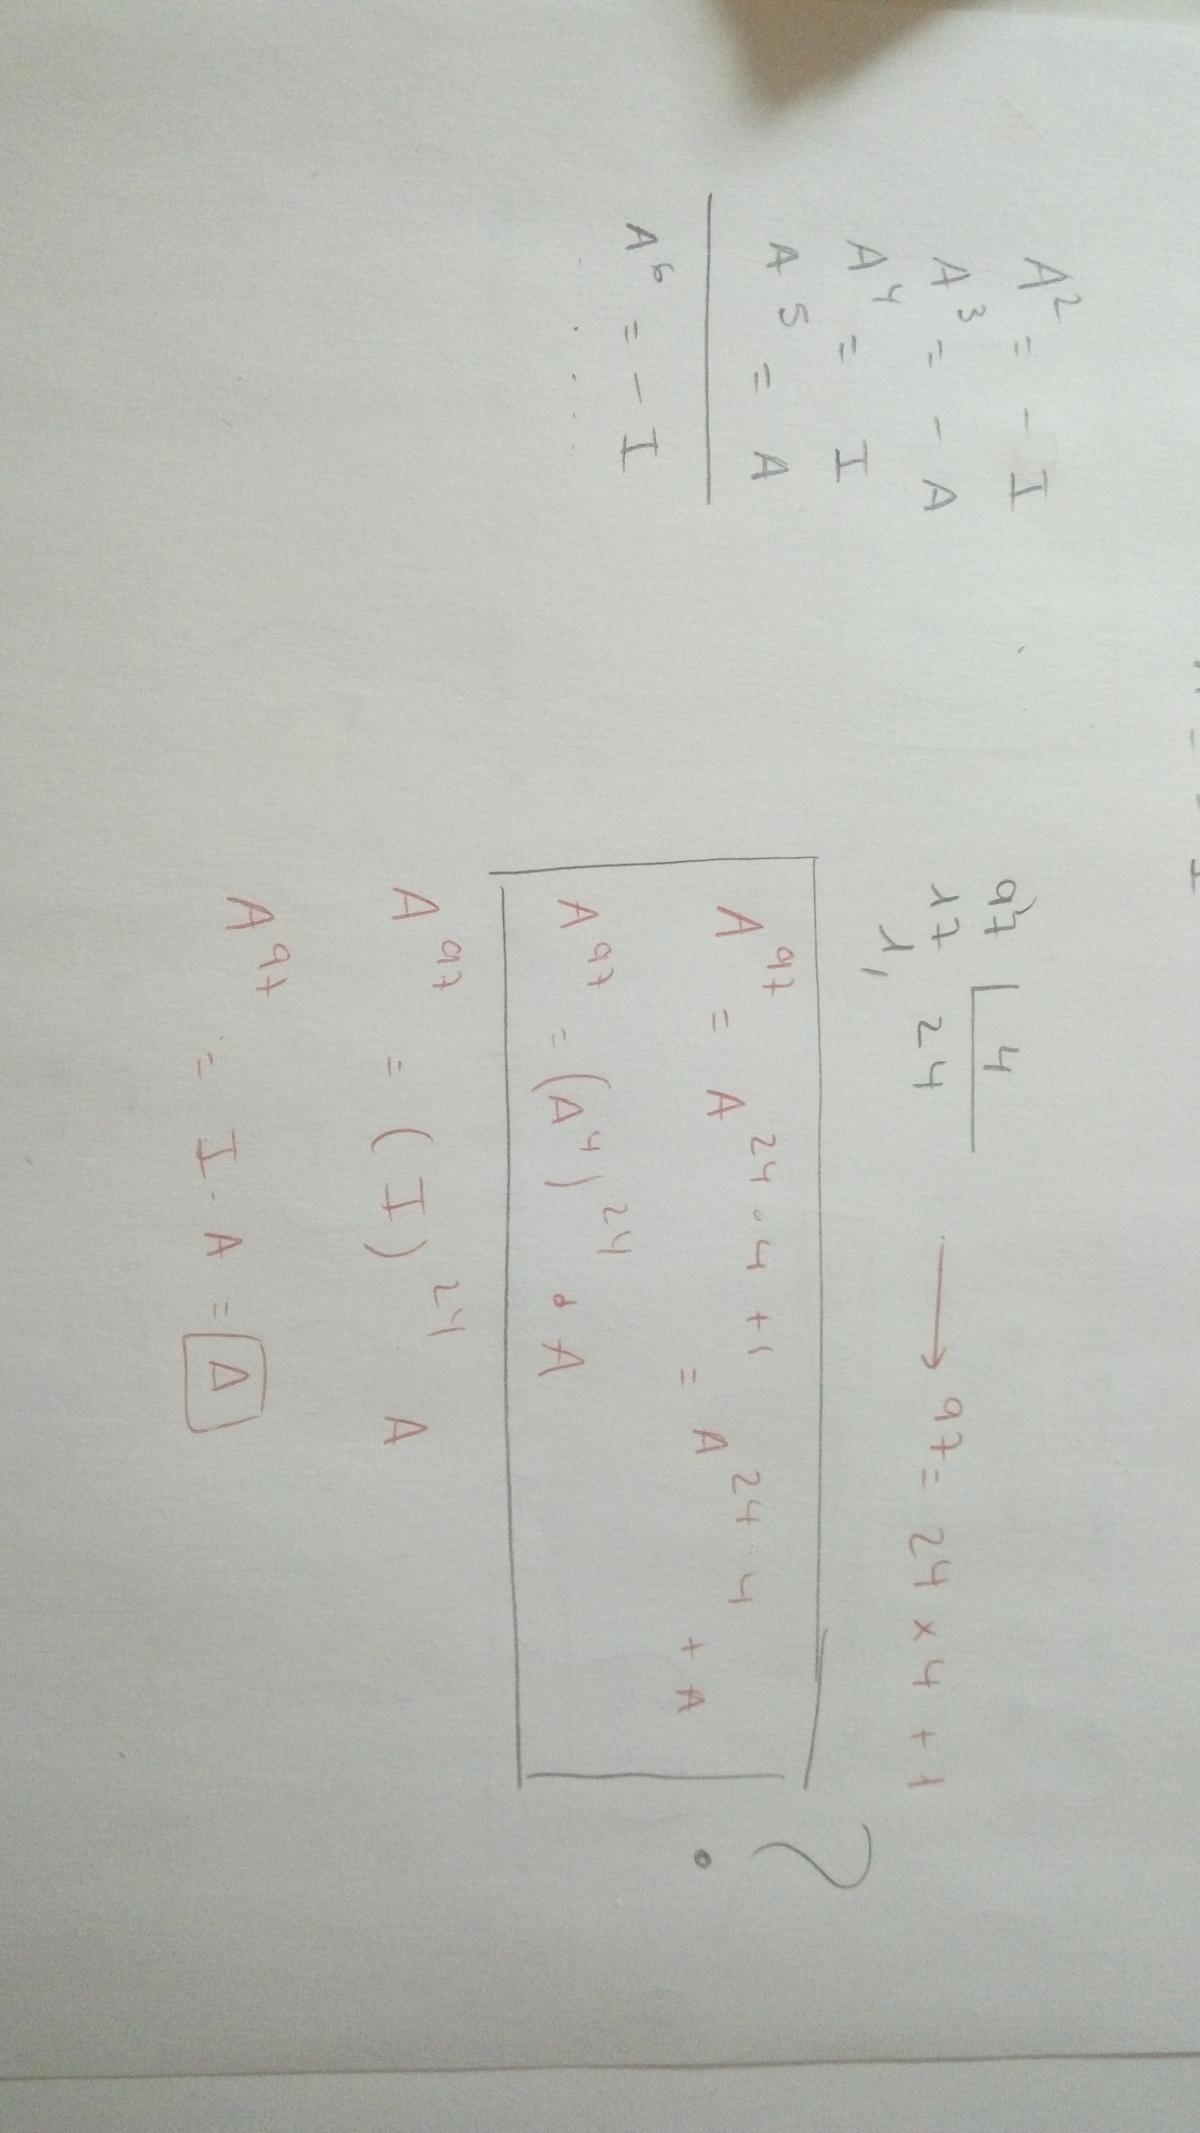 A² = - I
A³ = - A
A⁴ = I
A⁵ = A
A⁶ = - I
. . . .
97 | 4
17 24
1,
→ 97 = 24 x 4 + 1
A⁹⁷ = A²⁴·⁴⁺¹ = A²⁴·⁴ + A
A⁹⁷ = (A⁴)²⁴ · A
?
A⁹⁷ = (I)²⁴ A
A⁹⁷ = I · A = A